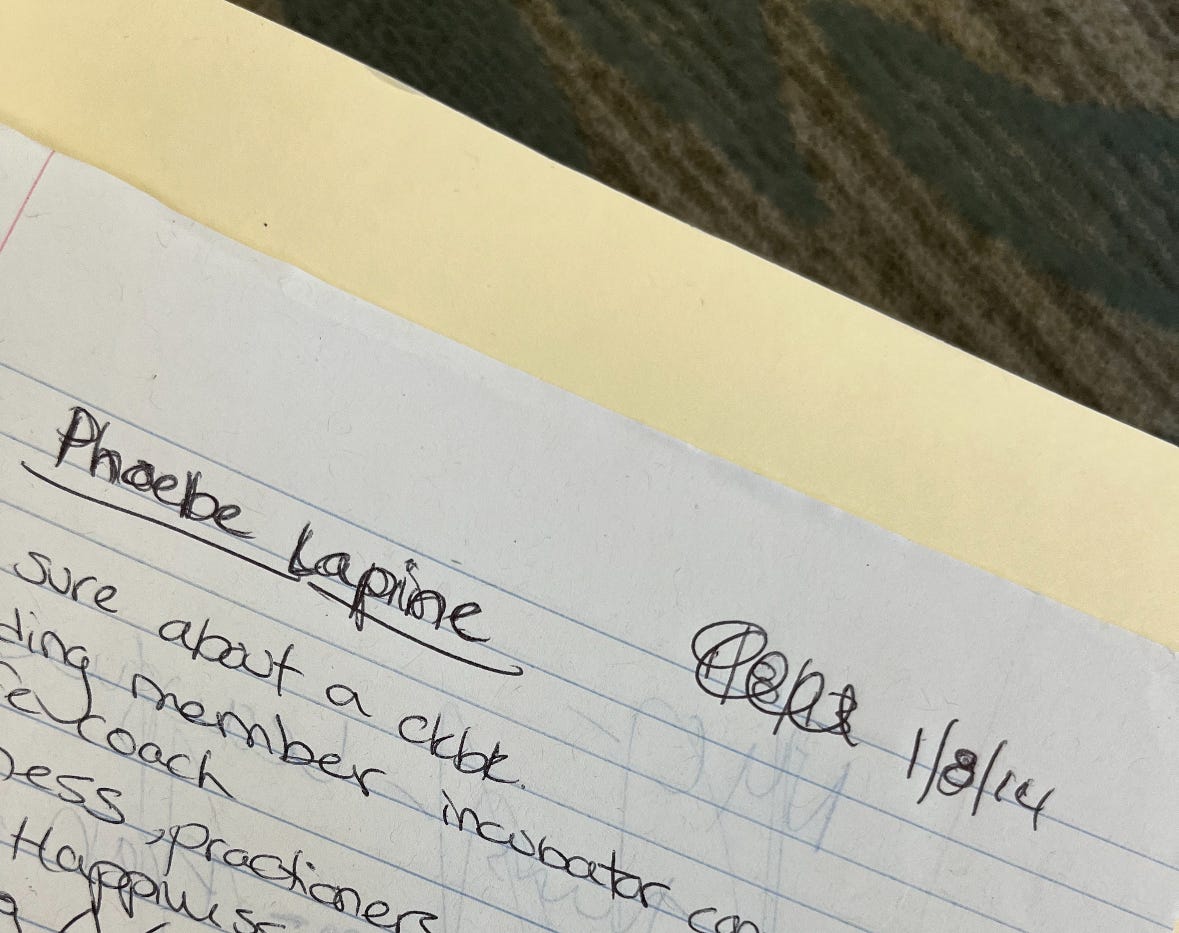 Phoebe Lapine
1/8/14
sure about a ckbk.
ding member incubator
coach
ess, practioners
Happiness